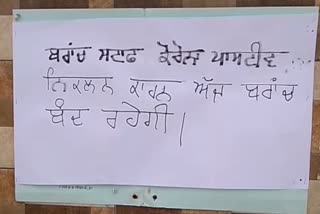 ਬਰਾਂਚ ਸਟਾਫ ਕੋਰੋਨਾ ਪਾਸਟੀਵ
ਨਿਕਲਨ ਕਾਰਨ ਅੱਜ ਬਰਾਂਚ
ਬੰਦ ਰਹੇਗੀ।